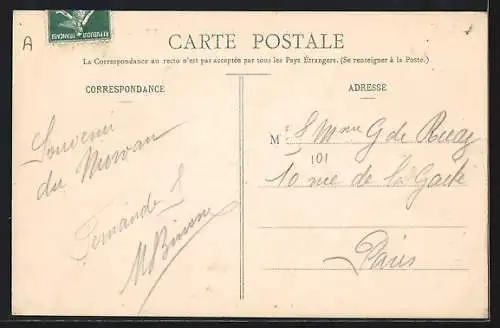 A
REPUBLIQUE FRANCAISE
CARTE POSTALE
La Correspondance au recto n'est pas acceptée par tous les Pays Étrangers. (Se renseigner à la Poste.)
CORRESPONDANCE
ADRESSE
Souvenir
du Morvan
Fernande
M
101
10 rue de la Gaité
Paris